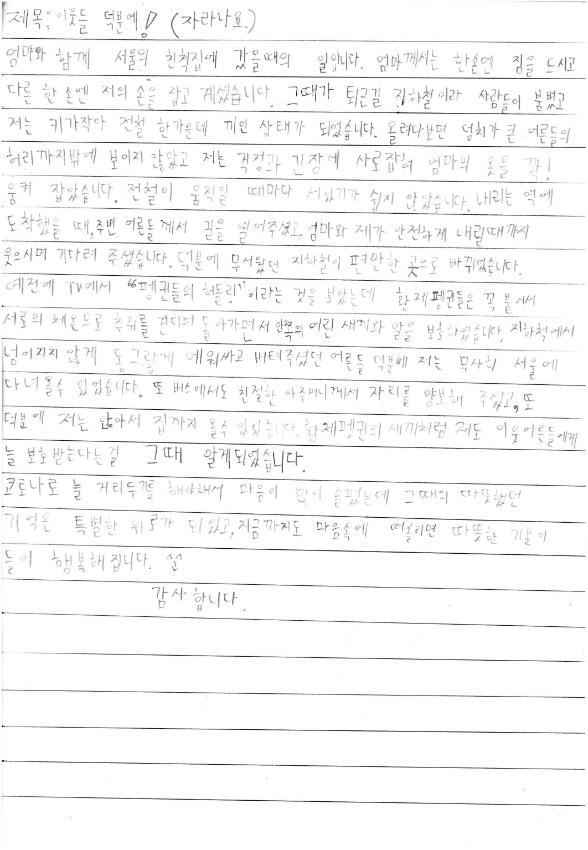 제목: 이웃들 덕분에! (자라나요.)
엄마와 함께 서울의 친척집에 갔을때의 일입니다. 엄마께서는 한손엔 짐을 드시고
다른 한 손엔 저의 손을 잡고 계셨습니다. 그때가 퇴근길 지하철이라 사람들이 붐볐고
저는 키가작아 전철 한가운데 끼인 상태가 되었습니다. 올려다보면 덩치가 큰 어른들의
허리까지밖에 보이지 않았고 저는 걱정과 긴장에 사로잡혀 엄마의 옷을 꽉!
움켜 잡았습니다. 전철이 움직일 때마다 서있기가 쉽지 않았습니다. 내리는 역에
도착했을 때, 주변 어른들께서 길을 열어주셨고, 엄마와 제가 안전하게 내릴때까지
웃으시며 기다려 주셨습니다. 덕분에 무서웠던 지하철이 편안한 곳으로 바뀌었습니다.
예전에 TV에서 "펭귄들의 허들링"이라는 것을 보았는데 황제펭귄들은 꼭 붙어서
서로의 체온으로 추위를 견디며 돌아가면서 안쪽의 어린 새끼와 알을 보호하였습니다. 지하철에서
넘어지지 않게 동그랗게 에워싸고 버텨주셨던 어른들 덕분에 저는 무사히 서울에
다녀올수 있었습니다. 또 버스에서도 친절한 아주머니께서 자리를 양보해 주셨고, 또
덕분에 저는 앉아서 집까지 올수 있었습니다. 황제펭귄의 새끼처럼 저도 이웃어른들에게
늘 보호받는다는걸 그때 알게되었습니다.
코로나로 늘 거리두기를 해야해서 마음이 많이 슬펐는데 그때의 따뜻했던
기억은 특별한 위로가 되었고, 지금까지도 마음속에 떠올리면 따뜻한 기분이
들어 행복해집니다.
감사합니다.